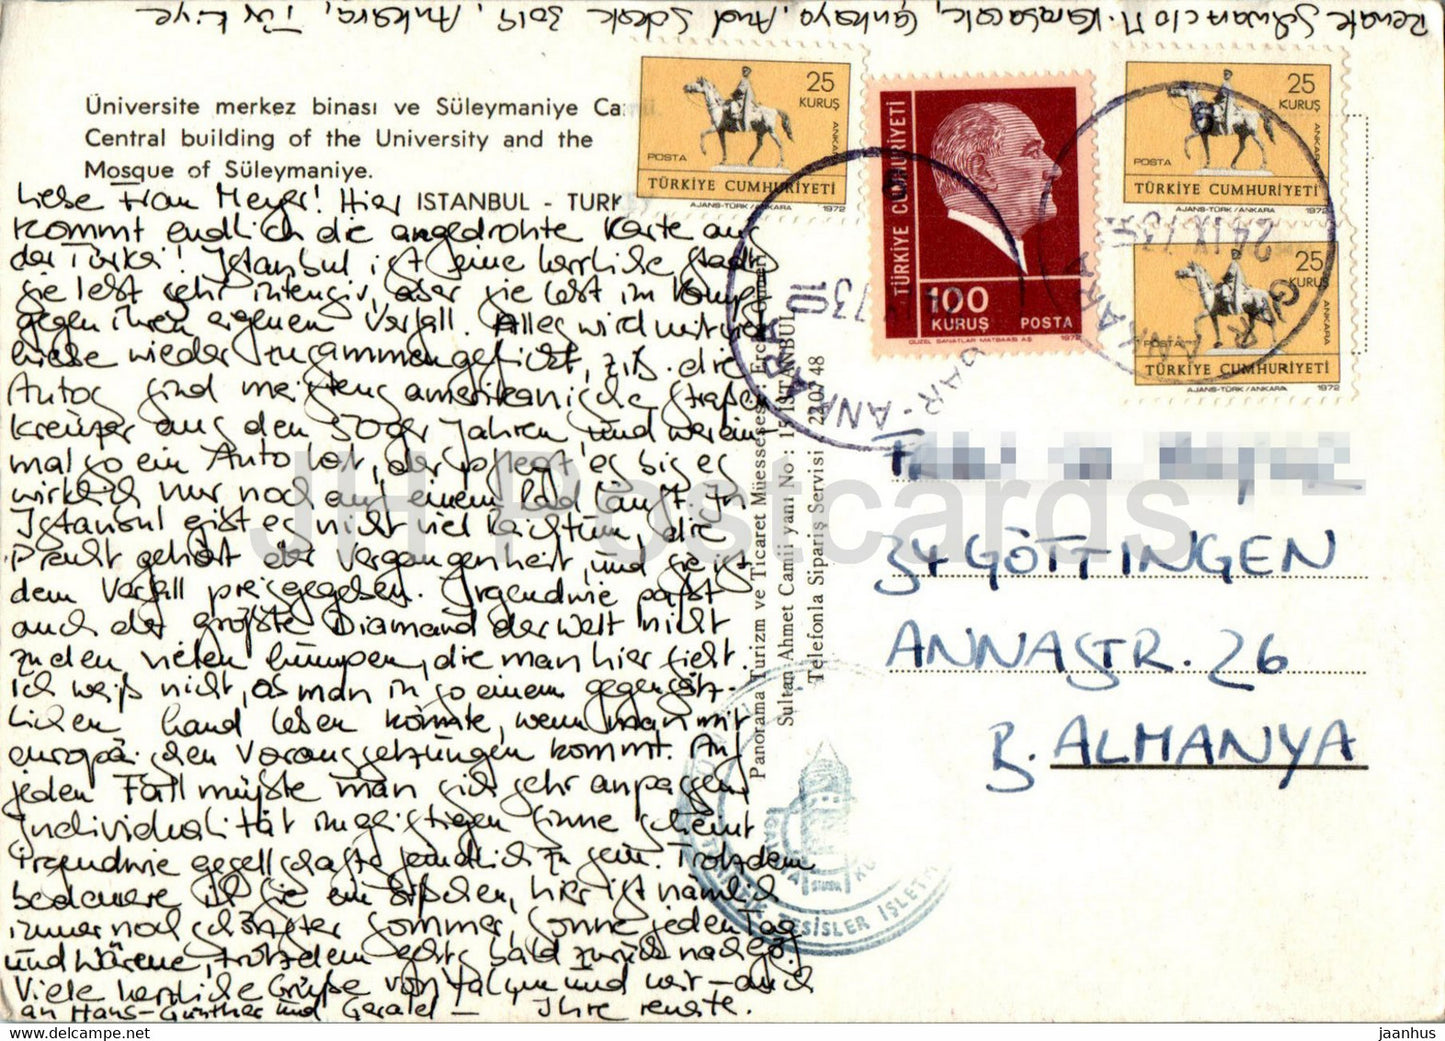 Renate Schwarz c/o M. Karasacak, Çankaya, And Sokak 30/9, Ankara, Türkiye
Üniversite merkez binası ve Süleymaniye Camii.
Central building of the University and the
Mosque of Süleymaniye.
ISTANBUL - TURKEY
Liebe Frau Meyer! Hier
kommt endlich die angedrohte Karte aus
der Türkei! Istanbul ist eine herrliche Stadt
sie lebt sehr intensiv, aber sie lebt im Kampf
gegen ihren eigenen Verfall. Alles wird mit viel
Liebe wieder zusammengeflickt, z.B. die
Autos sind meistens amerikanische Straßen
kreuzer aus den 50ger Jahren, und wer ein
mal so ein Auto hat, der pflegt es bis es
wirklich nur noch auf einem Rad läuft. In
Istanbul gibt es nicht viel Reichtum, die
Pracht gehört der Vergangenheit, und sie ist
dem Verfall preisgegeben. Irgendwie paßt
auch der größte Diamand der Welt nicht
zu den vielen Lumpen, die man hier sieht.
Ich weiß nicht, ob man in so einem gegensätz-
lichen Land leben könnte, wenn man mit
europäischen Voraussetzungen kommt. Auf
jeden Fall müßte man sich sehr anpassen,
Individualität im geistigen Sinne scheint
irgendwie gesellschaftsfeindlich zu sein. Trotzdem
bedauere ich Sie ein bißchen, hier ist nämlich
immer noch schönster Sommer, Sonne jeden Tag
und Wärme, trotzdem geht's bald zurück nach Gö.
Viele herzliche Grüße von Yalçın und mir – auch
an Hans-Günther und Gerald – Ihre Renate.
25
KURUŞ
ANKARA
POSTA
TÜRKİYE CUMHURİYETİ
AJANS-TÜRK/ANKARA 1972
TÜRKİYE CUMHURİYETİ
100
KURUŞ POSTA
GÜZEL SANATLAR MATBAASI AŞ. 1972
25
KURUŞ
ANKARA
POSTA
TÜRKİYE CUMHURİYETİ
AJANS-TÜRK/ANKARA 1972
25
KURUŞ
ANKARA
POSTA
TÜRKİYE CUMHURİYETİ
AJANS-TÜRK/ANKARA 1972
GAR - ANKARA
24 IX 73
GAR - ANKARA
730
10
Panorama Turizm ve Ticaret Müessesesi:
Sultan Ahmet Camii yanı No : 15 İSTANBUL
Telefonla Sipariş Servisi : 22 07 48
34 GÖTTINGEN
ANNASTR. 26
B. ALMANYA
GALATA KULESİ
TURİSTİK TESİSLER İŞLETM
JH Postcards
www.delcampe.net
jaanhus